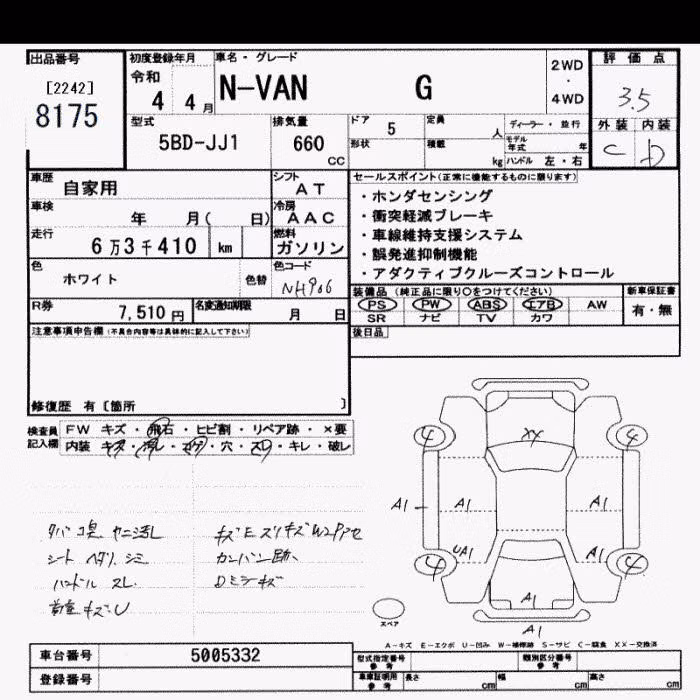 出品番号
[2242]
8175
初度登録年月
令和
4 4月
車名・グレード
N-VAN G
2WD
・
4WD
評価点
3.5
外装 内装
C D
型式
5BD-JJ1
排気量
660
CC
ドア
5
定員
人
ディーラー・並行
モデル年式 年
形状
積載
kg
ハンドル 左・右
車歴
自家用
シフト
AT
車検
年 月( 日)
冷房
AAC
走行
6万3千410 km
燃料
ガソリン
色
ホワイト
色替
色コード
NH906
R券
7,510円
名変通知期限
月 日
セールスポイント(正常に機能するものに限ります)
・ホンダセンシング
・衝突軽減ブレーキ
・車線維持支援システム
・誤発進抑制機能
・アダクティブクルーズコントロール
装備品 (純正品に限り○をつけてください)
PS PW ABS エアB AW
SR ナビ TV カワ
新車保証書
有・無
後日品
注意事項申告欄(不具合内容等は具体的に記入して下さい)
修復歴 有 [箇所 ]
検査員記入欄
FW キズ・飛石・ヒビ割・リペア跡・×要
内装 キズ・汚レ・コゲ・穴・スレ・キレ・破レ
タバコ臭 ヤニ汚し
シート ヘタリ シミ
ハンドル スレ
キズE スリキズ W2 P
カンバン跡
Dミラーキズ
4
4
XX
A1
A1
A1
UA1
A1
4
4
A1
A1
スペア
A-キズ E-エクボ U-凹み W-補修跡 S-サビ C-腐食 XX-交換済
車台番号
5005332
登録番号
型式指定番号
参考
類別区分番号
参考
車庫証明用
参考
長さ cm
幅 cm
高さ cm